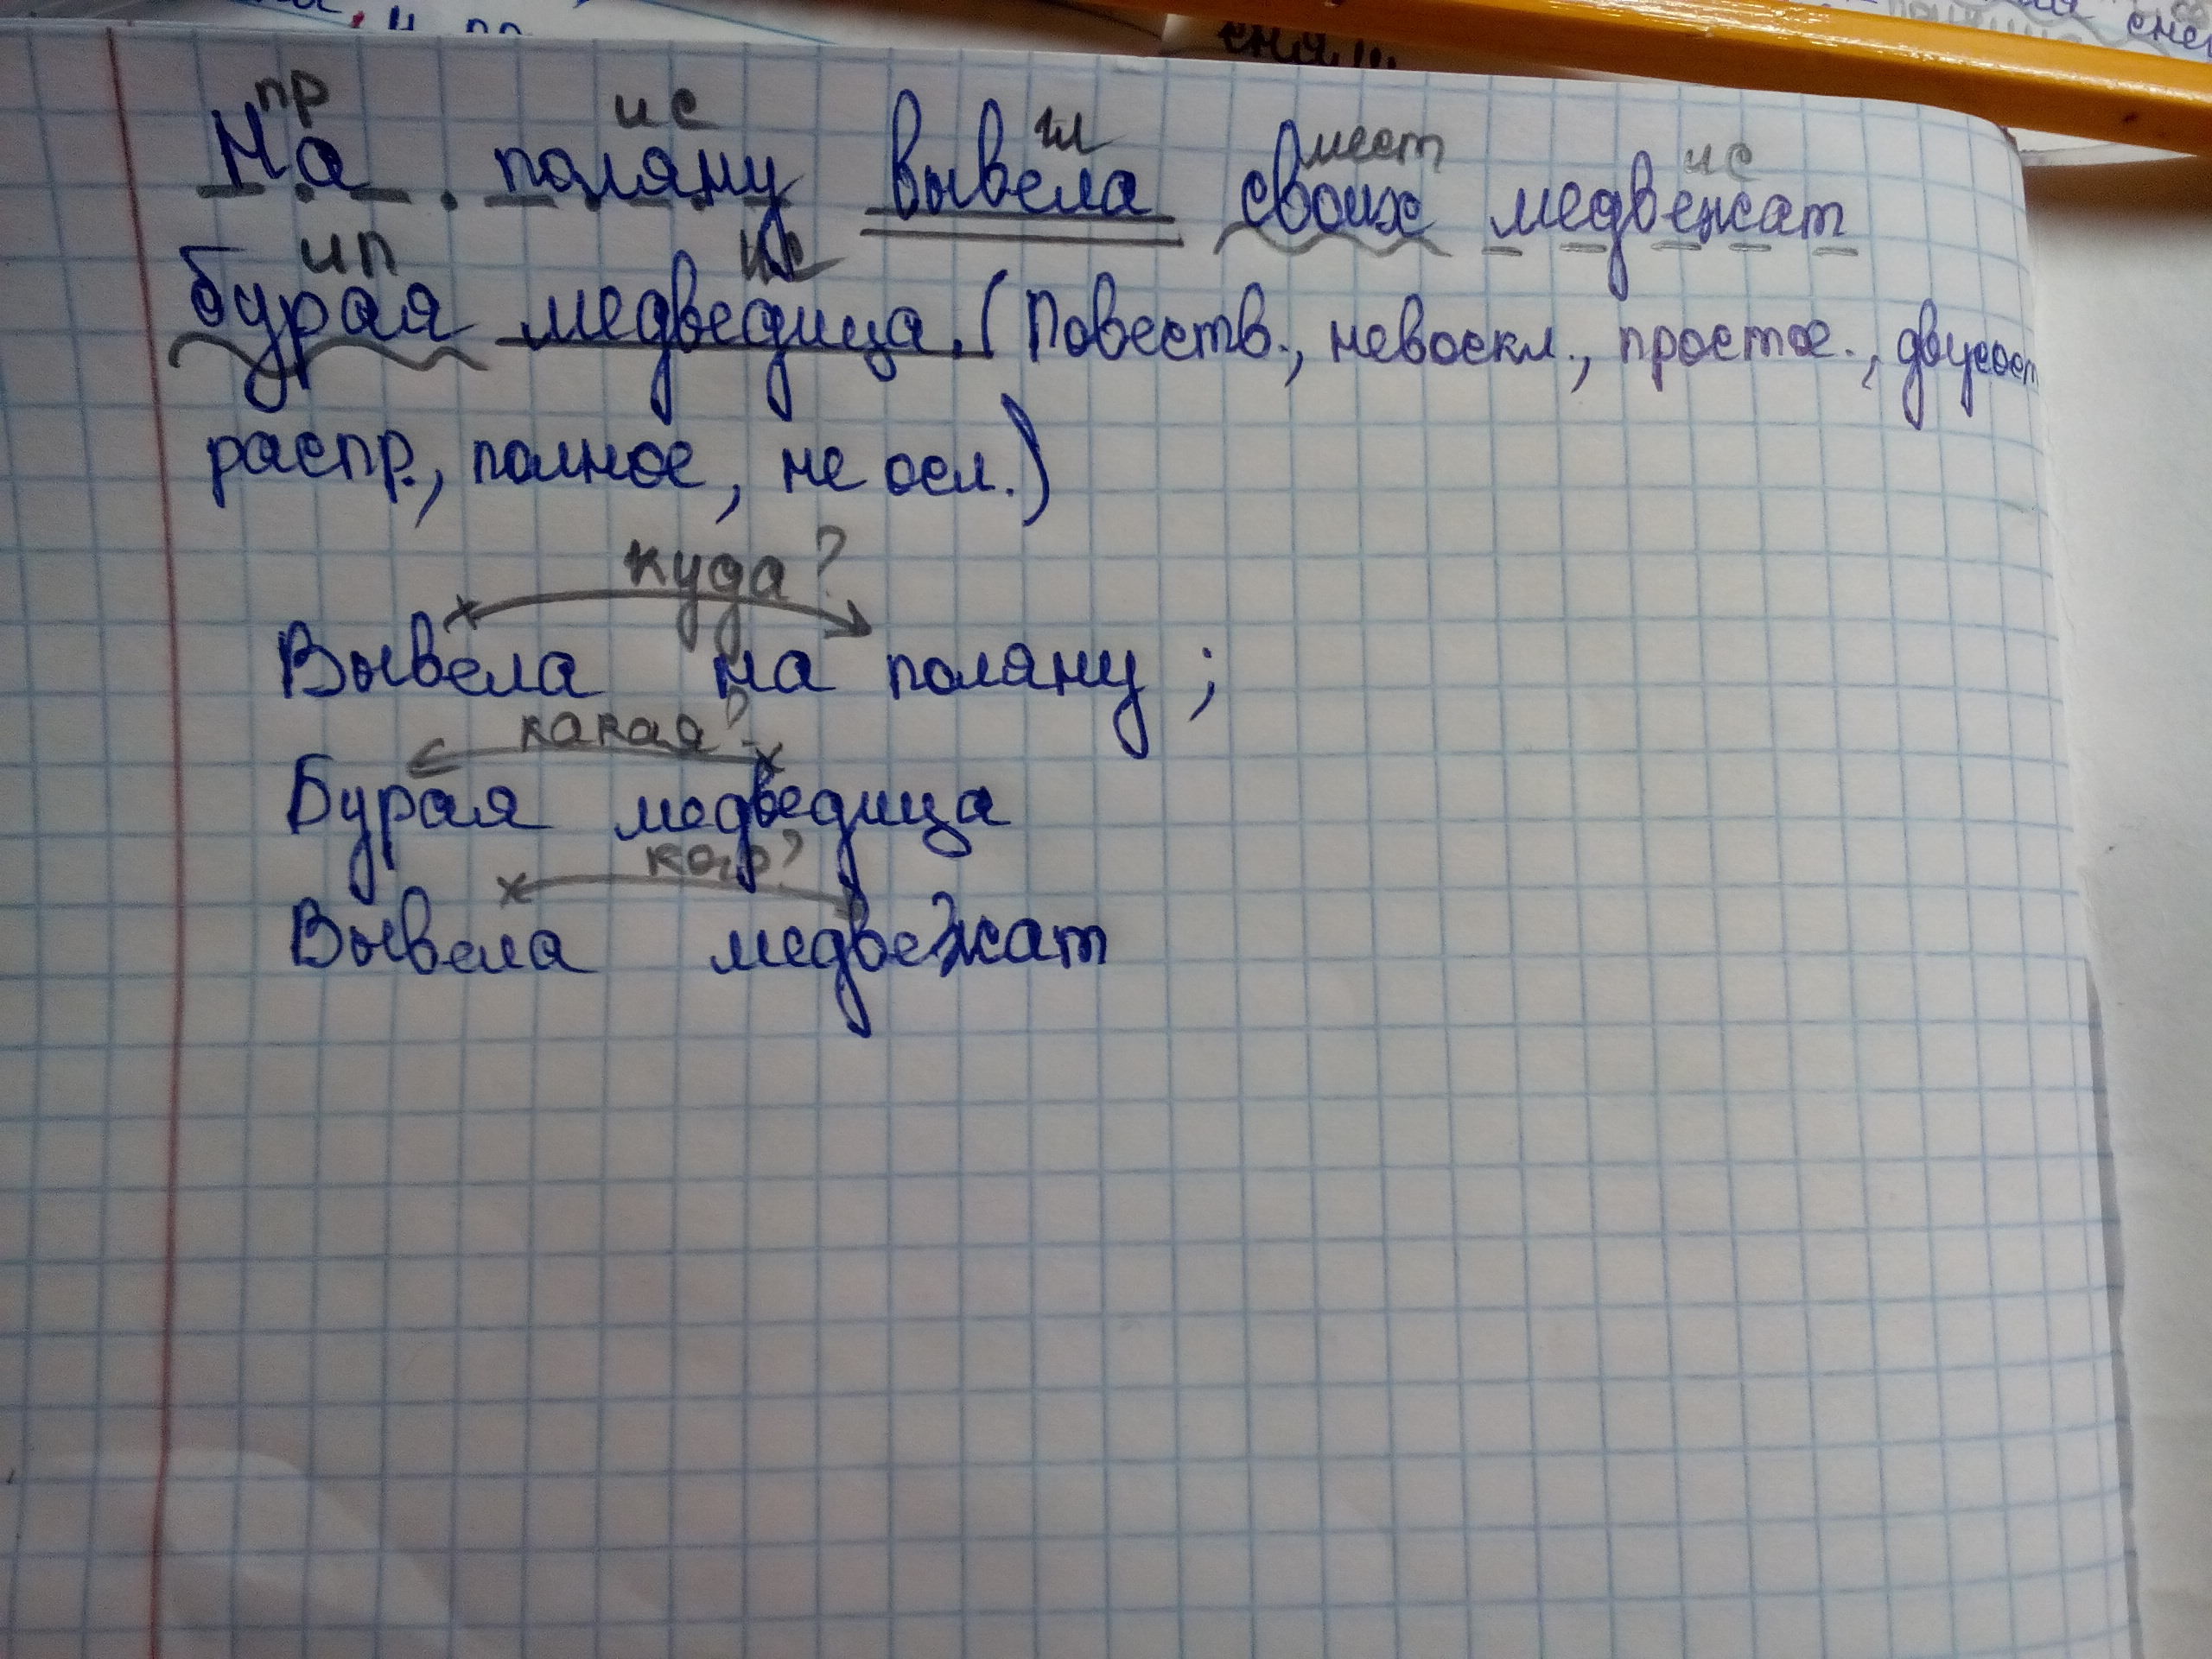 сня!!!
пр ис гл мест ис
На поляну вывела своих медвежат
ип ис
бурая медведица. (Повеств., невоскл., простое., двусост
распр., полное, не осл.)
куда?
Вывела на поляну ;
какая?
Бурая медведица
кого?
Вывела медвежат